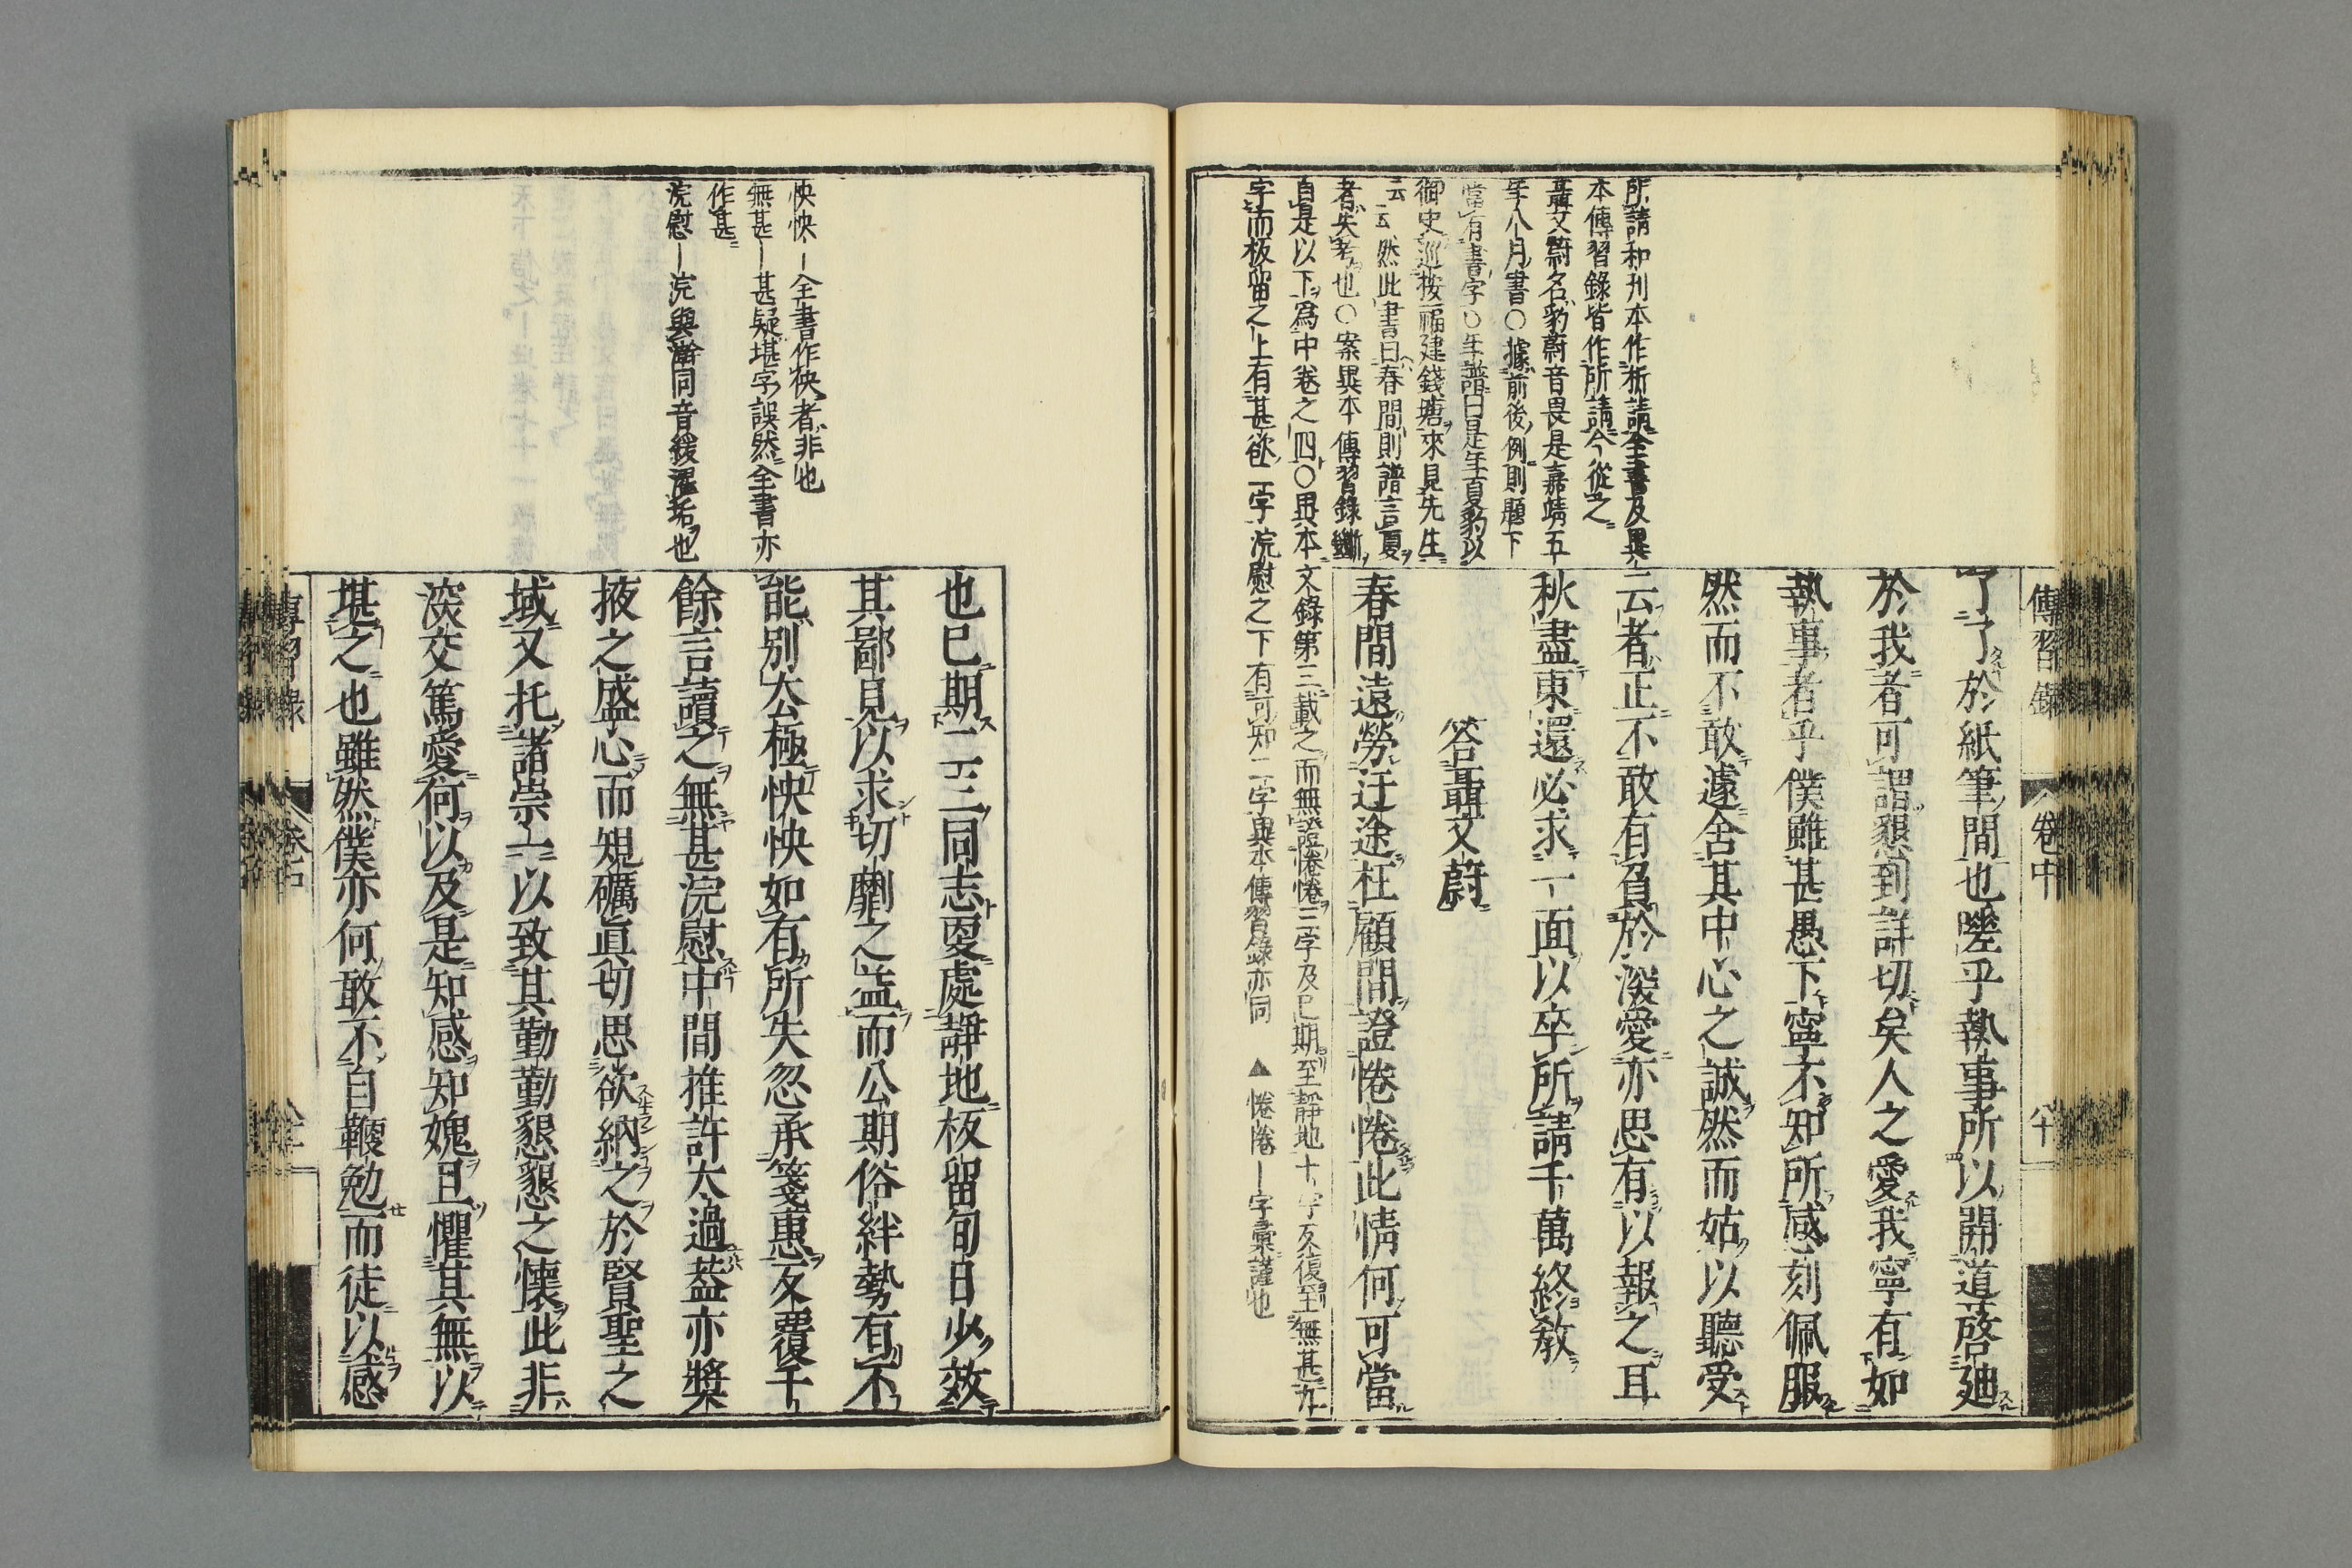 傳習錄
卷中
八十
了了於紙筆間也嗟乎執事所以開道啓廸
於我者可謂懇到詳切矣人之愛我寧有如
執事者乎僕雖甚愚下寧不知所感刻佩服
然而不敢遽舍其中心之誠然而姑以聽受
云者正不敢有負於深愛亦思有以報之耳
秋盡東還必求一面以卒所請千萬終教
答聶文蔚
春間遠勞迂途枉顧間證惓惓此情何可當
所請和刊本作析請全書及異
本傳習錄皆作所請今從之
聶文蔚名豹蔚音畏是嘉靖五
年八月書○據前後例則題下
當有書字○年譜曰是年夏豹以
御史巡按福建錢塘來見先生
云云然此書曰春間則譜言夏
者失考也○案異本傳習錄斷
自是以下爲中卷之四○異本文錄第三載之而無證惓惓三字及已期至靜地十字及復至無甚九
字而板留之上有甚欲二字浣慰之下有可知二字異本傳習錄亦同 ▲惓惓―字彙謹也
怏怏―全書作秧者非也
無甚―甚疑堪字誤然全書亦
作甚
浣慰―浣與澣同音緩濯垢也
也已期二三同志更處靜地板留旬日少效
其鄙見以求切劘之益而公期俗絆勢有不
能別去極怏怏如有所失忽承箋惠反覆千
餘言讀之無甚浣慰中間推許太過葢亦奬
掖之盛心而規礪眞切思欲納之於賢聖之
域又托諸崇一以致其勤勤懇懇之懷此非
深交篤愛何以及是知感知媿且懼其無以
堪之也雖然僕亦何敢不自鞭勉而徒以感
傳習錄
卷中